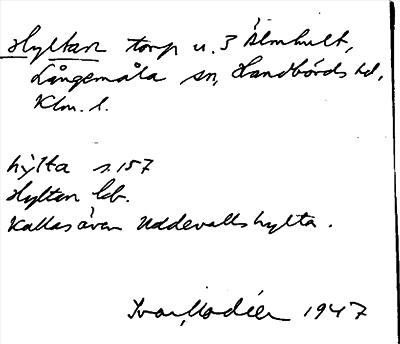 Hyltan torp u. 3 Älmhult,
Långemåla sn, Handbörds hd,
Klm. l.
hylta s. 157
Hyltan lb.
Kallas även Uddevallshylta.
Ivar Modéer 1947